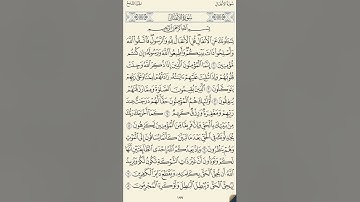 سورة الأنفال
الجزء التاسع
سُورَةُ الأَنفَالِ
بِسْمِ ٱللَّهِ ٱلرَّحْمَٰنِ ٱلرَّحِيمِ
يَسْـَٔلُونَكَ عَنِ ٱلْأَنفَالِ قُلِ ٱلْأَنفَالُ لِلَّهِ وَٱلرَّسُولِ فَٱتَّقُوا۟ ٱللَّهَ
وَأَصْلِحُوا۟ ذَاتَ بَيْنِكُمْ وَأَطِيعُوا۟ ٱللَّهَ وَرَسُولَهُۥٓ إِن كُنتُم
مُّؤْمِنِينَ ١ إِنَّمَا ٱلْمُؤْمِنُونَ ٱلَّذِينَ إِذَا ذُكِرَ ٱللَّهُ وَجِلَتْ
قُلُوبُهُمْ وَإِذَا تُلِيَتْ عَلَيْهِمْ ءَايَٰتُهُۥ زَادَتْهُمْ إِيمَٰنًا وَعَلَىٰ رَبِّهِمْ
يَتَوَكَّلُونَ ٢ ٱلَّذِينَ يُقِيمُونَ ٱلصَّلَوٰةَ وَمِمَّا رَزَقْنَٰهُمْ
يُنفِقُونَ ٣ أُو۟لَٰٓئِكَ هُمُ ٱلْمُؤْمِنُونَ حَقًّا لَّهُمْ دَرَجَٰتٌ عِندَ
رَبِّهِمْ وَمَغْفِرَةٌ وَرِزْقٌ كَرِيمٌ ٤ كَمَآ أَخْرَجَكَ رَبُّكَ
مِنۢ بَيْتِكَ بِٱلْحَقِّ وَإِنَّ فَرِيقًا مِّنَ ٱلْمُؤْمِنِينَ لَكَٰرِهُونَ ٥
يُجَٰدِلُونَكَ فِى ٱلْحَقِّ بَعْدَ مَا تَبَيَّنَ كَأَنَّمَا يُسَاقُونَ إِلَى ٱلْمَوْتِ
وَهُمْ يَنظُرُونَ ٦ وَإِذْ يَعِدُكُمُ ٱللَّهُ إِحْدَى ٱلطَّآئِفَتَيْنِ أَنَّهَا
لَكُمْ وَتَوَدُّونَ أَنَّ غَيْرَ ذَاتِ ٱلشَّوْكَةِ تَكُونُ لَكُمْ وَيُرِيدُ
ٱللَّهُ أَن يُحِقَّ ٱلْحَقَّ بِكَلِمَٰتِهِۦ وَيَقْطَعَ دَابِرَ ٱلْكَٰفِرِينَ ٧
لِيُحِقَّ ٱلْحَقَّ وَيُبْطِلَ ٱلْبَٰطِلَ وَلَوْ كَرِهَ ٱلْمُجْرِمُونَ ٨
١٧٧